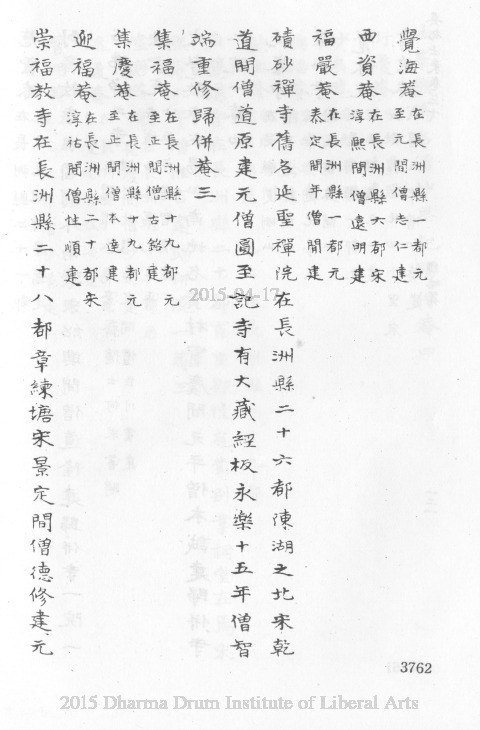 覺海菴 在長洲縣 都元
至元間僧志仁建
西資菴 在長洲縣六都宋
淳熙間僧遠明建
福嚴菴 在長洲縣一都元
泰定間年僧開建
磧砂禪寺舊名延聖禪院在長洲縣二十六都陳湖之北宋乾
道間僧道原建元僧圓至記寺有大藏經板永樂十五年僧智
端重修歸併菴三
集福菴 在長洲縣十九都元
至正間僧銘建
集慶菴 在長洲縣十九都元
至正間僧本達建
迎福菴 在長洲縣二十都宋
淳祐間僧性順建
崇福教寺在長洲縣二十八都章練塘宋景定間僧德修建元
2015-04-17
3762
2015 Dharma Drum Institute of Liberal Arts